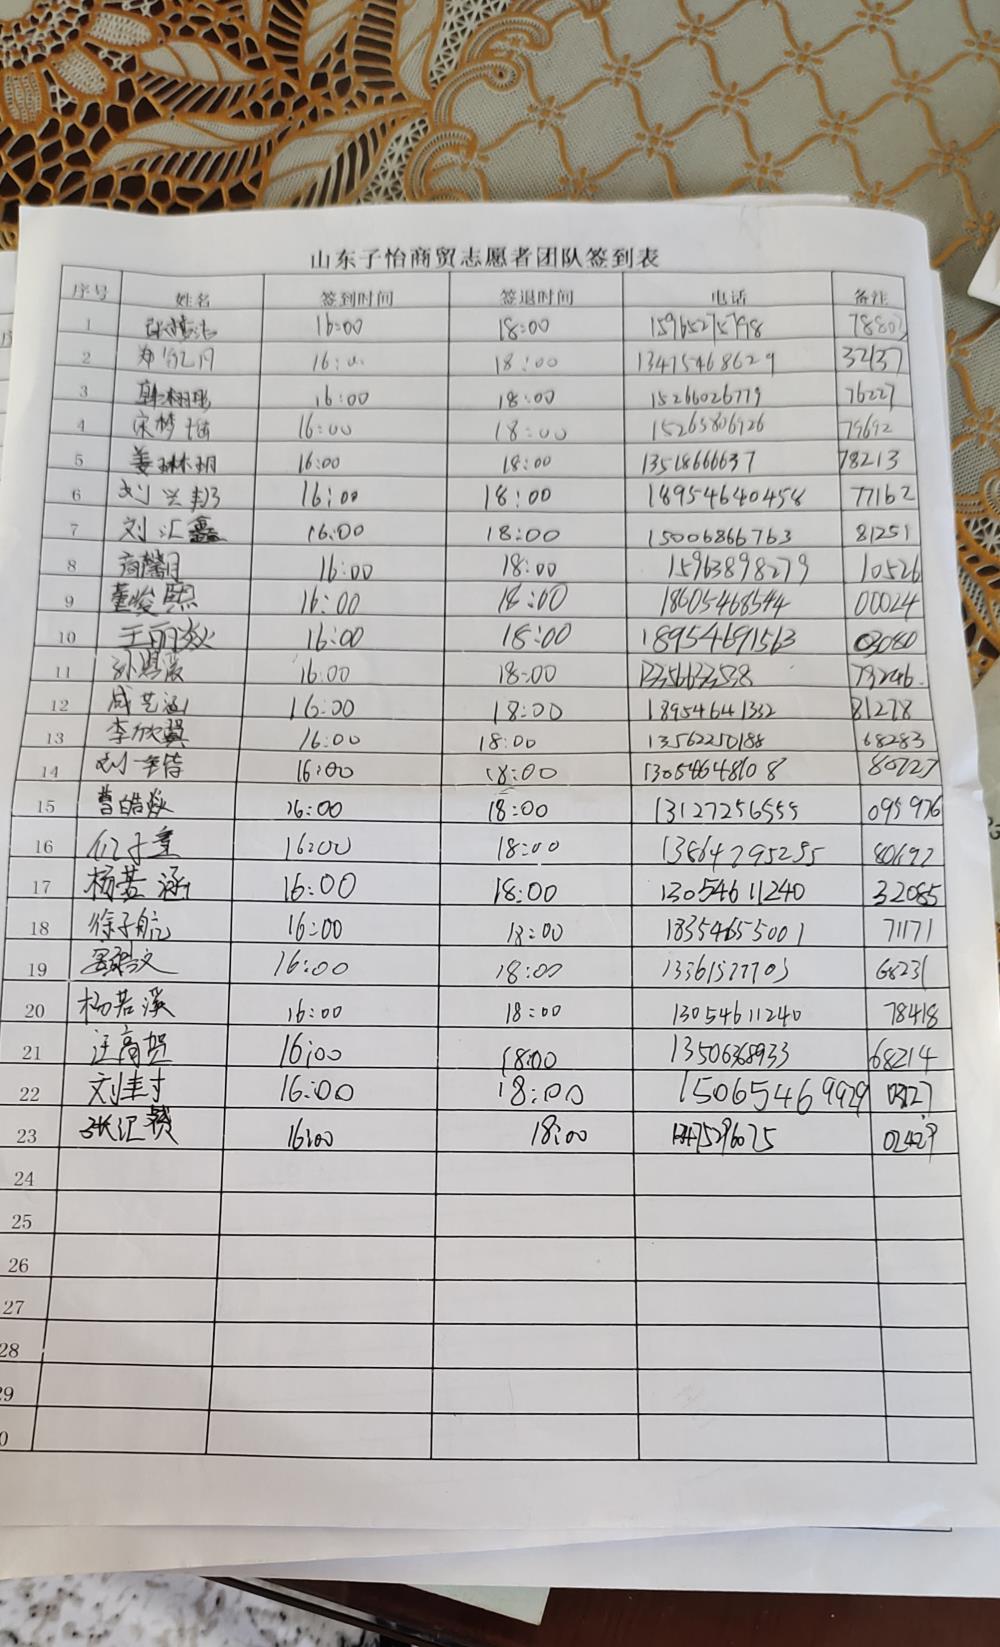 山东子怡商贸志愿者团队签到表
序号 姓名 签到时间 签退时间 电话 备注
1 16:00 18:00 15965275798 7880
2 16:00 18:00 13475468629 32137
3 韩栩彤 16:00 18:00 15266026779 76227
4 宋梦瑶 16:00 18:00 15265806926 79692
5 姜琳玥 16:00 18:00 13518666637 78213
6 刘兴邦 16:00 18:00 18954640458 77162
7 刘汇鑫 16:00 18:00 15006866763 81251
8 商馨月 16:00 18:00 15963898279 10526
9 董峻熙 16:00 18:00 18605468544 00024
10 王丽焱 16:00 18:00 18954691563 03080
11 16:00 18:00 73246
12 成艺涵 16:00 18:00 18954641332 81278
13 李欣翼 16:00 18:00 13562250188 68283
14 刘 16:00 18:00 13054648108 80727
15 曹皓焱 16:00 18:00 13127256555 095976
16 16:00 18:00 13864795295 80692
17 杨若涵 16:00 18:00 13054611240 32085
18 徐子航 16:00 18:00 18354655001 71171
19 16:00 18:00 13361527703 68231
20 杨若溪 16:00 18:00 13054611240 78418
21 汪高贺 16:00 18:00 13506368933 68214
22 刘丰寸 16:00 18:00 15065469929
23 张汇赞 16:00 18:00 13475296075 02429
24
25
26
27
28
29
0